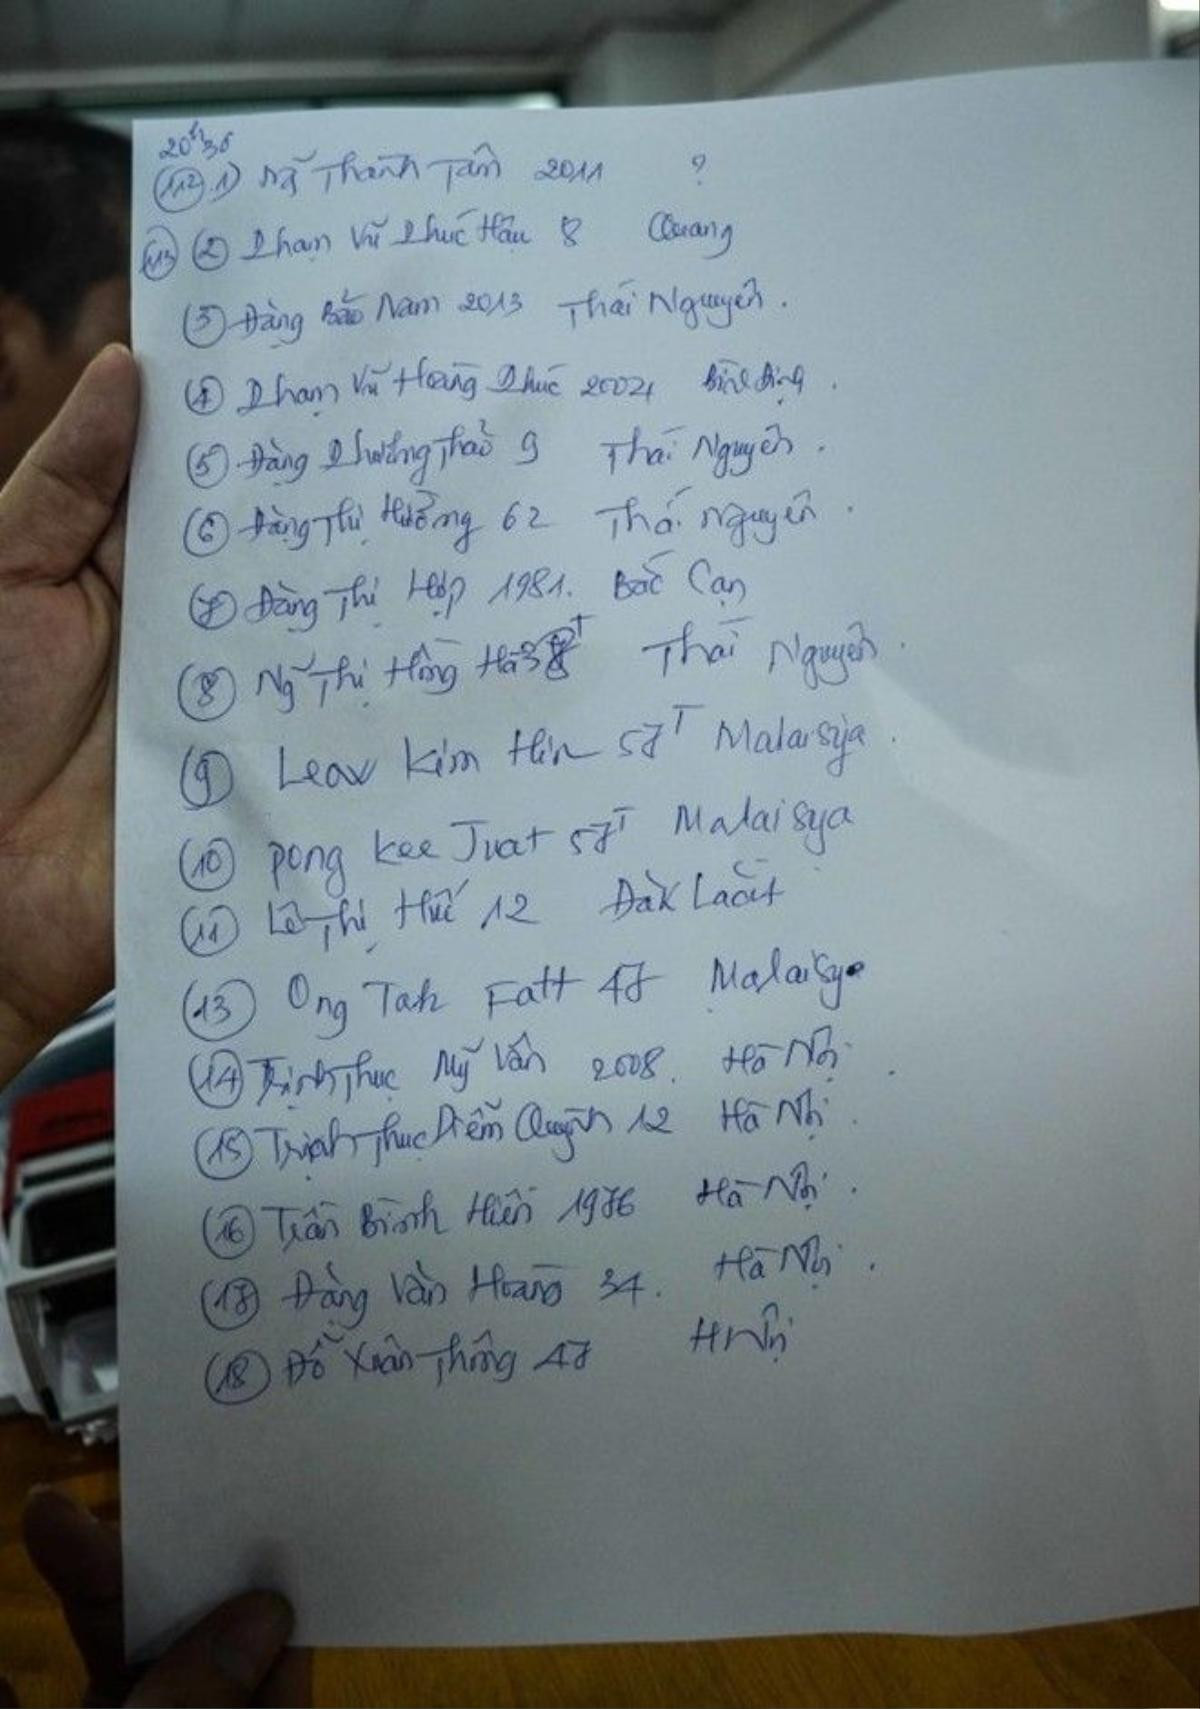 20h36
(112) 1) Ng̃ Thanh Tâm 2011 ?
(113) (2) Phạm Vũ Phúc Hậu 8 Quang
(3) Đặng Bảo Nam 2013 Thái Nguyên.
(4) Phạm Vũ Hoàng Phúc 2004 Bình Định.
(5) Đặng Phương Thảo 9 Thái Nguyên.
(6) Đặng Thị Hường 62 Thái Nguyên.
(7) Đặng Thị Hợp 1981. Bắc Cạn
(8) Ng̃ Thị Hồng Hà T Thái Nguyên.
(9) Leav Kim Hin 57T Malaisya.
(10) Pong Kee Juat 57T Malaisya
(11) Lê Thị Huế 12 Đăk Lăk
(13) Ong Tah Fatt 47 Malaisya
(14) Trịnh Thục Mỹ Vân 2008. Hà Nội.
(15) Trịnh Thục Diễm Quỳnh 12 Hà Nội.
(16) Trần Bình Hiền 1976 Hà Nội.
(17) Đặng Văn Hoàng 34. Hà Nội.
(18) Đỗ Xuân Thông 47 H Nội